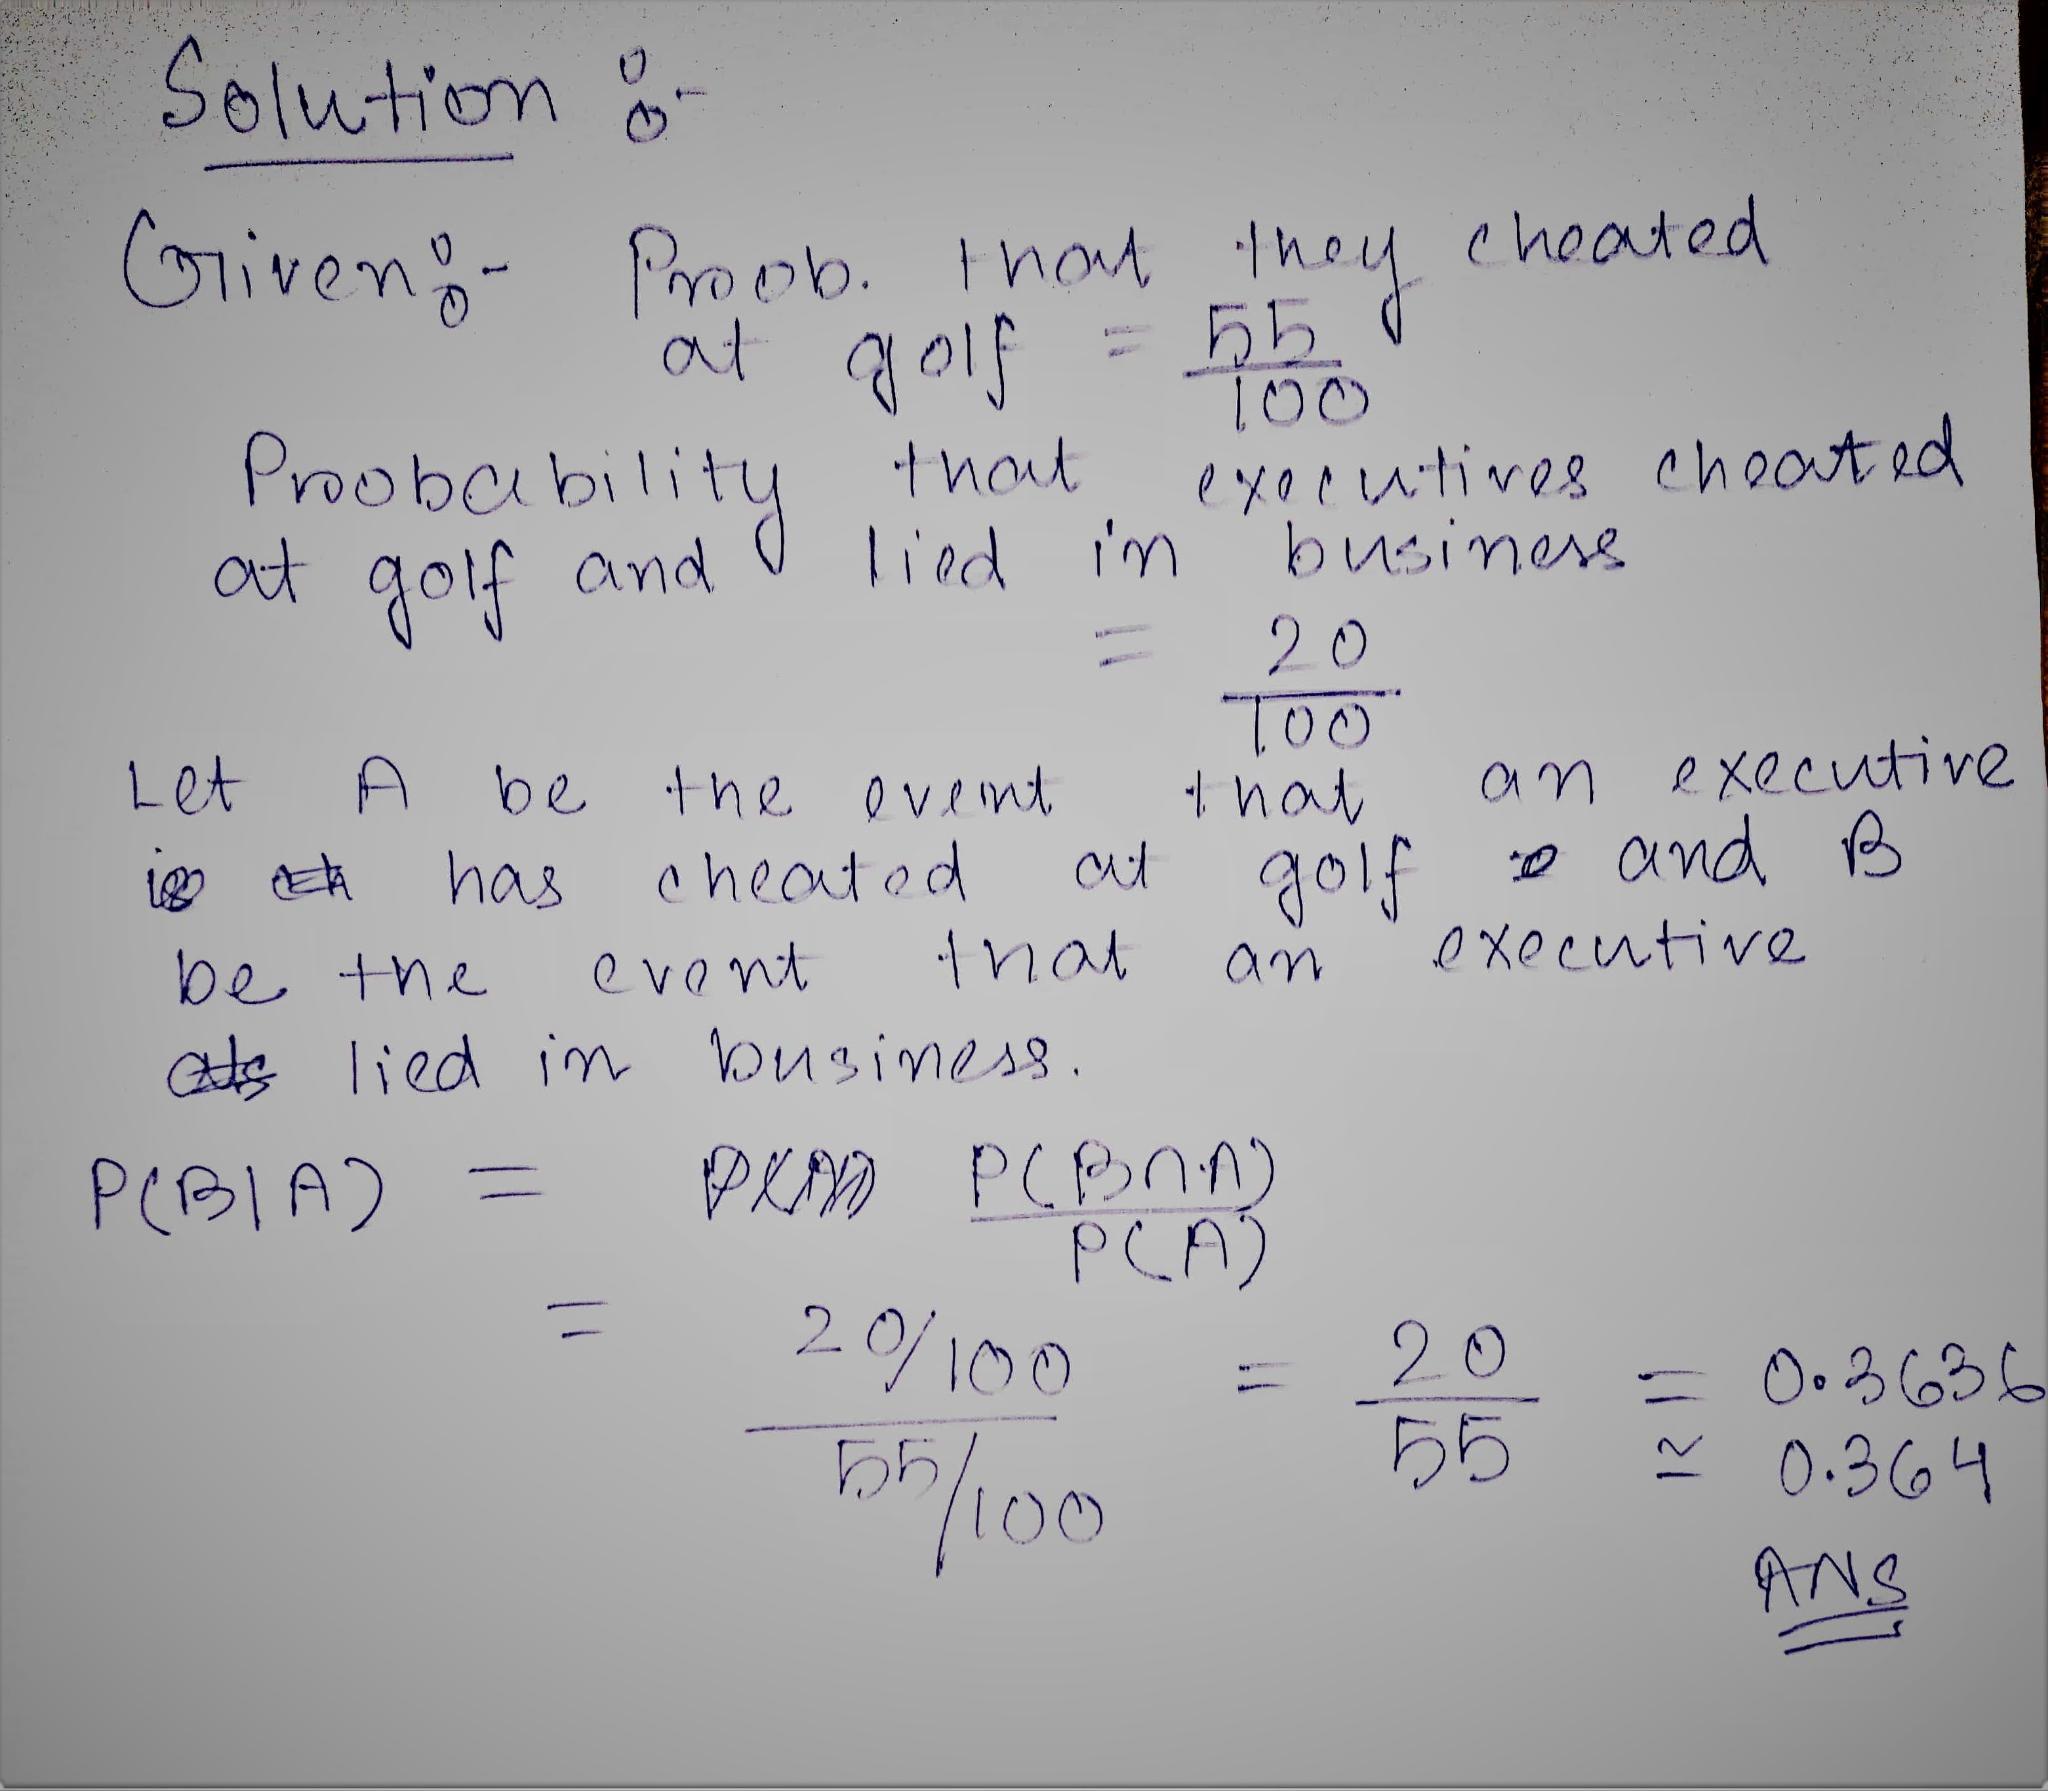 Solution :-
Given :- Prob. that they cheated
at golf = 55/100
Probability that executives cheated
at golf and lied in business
= 20/100
Let A be the event that an executive
has cheated at golf and B
be the event that an executive
lied in business.
P(B|A) = P(B∩A)/P(A)
= 20/100 / 55/100 = 20/55 = 0.3636
≃ 0.364
ANS